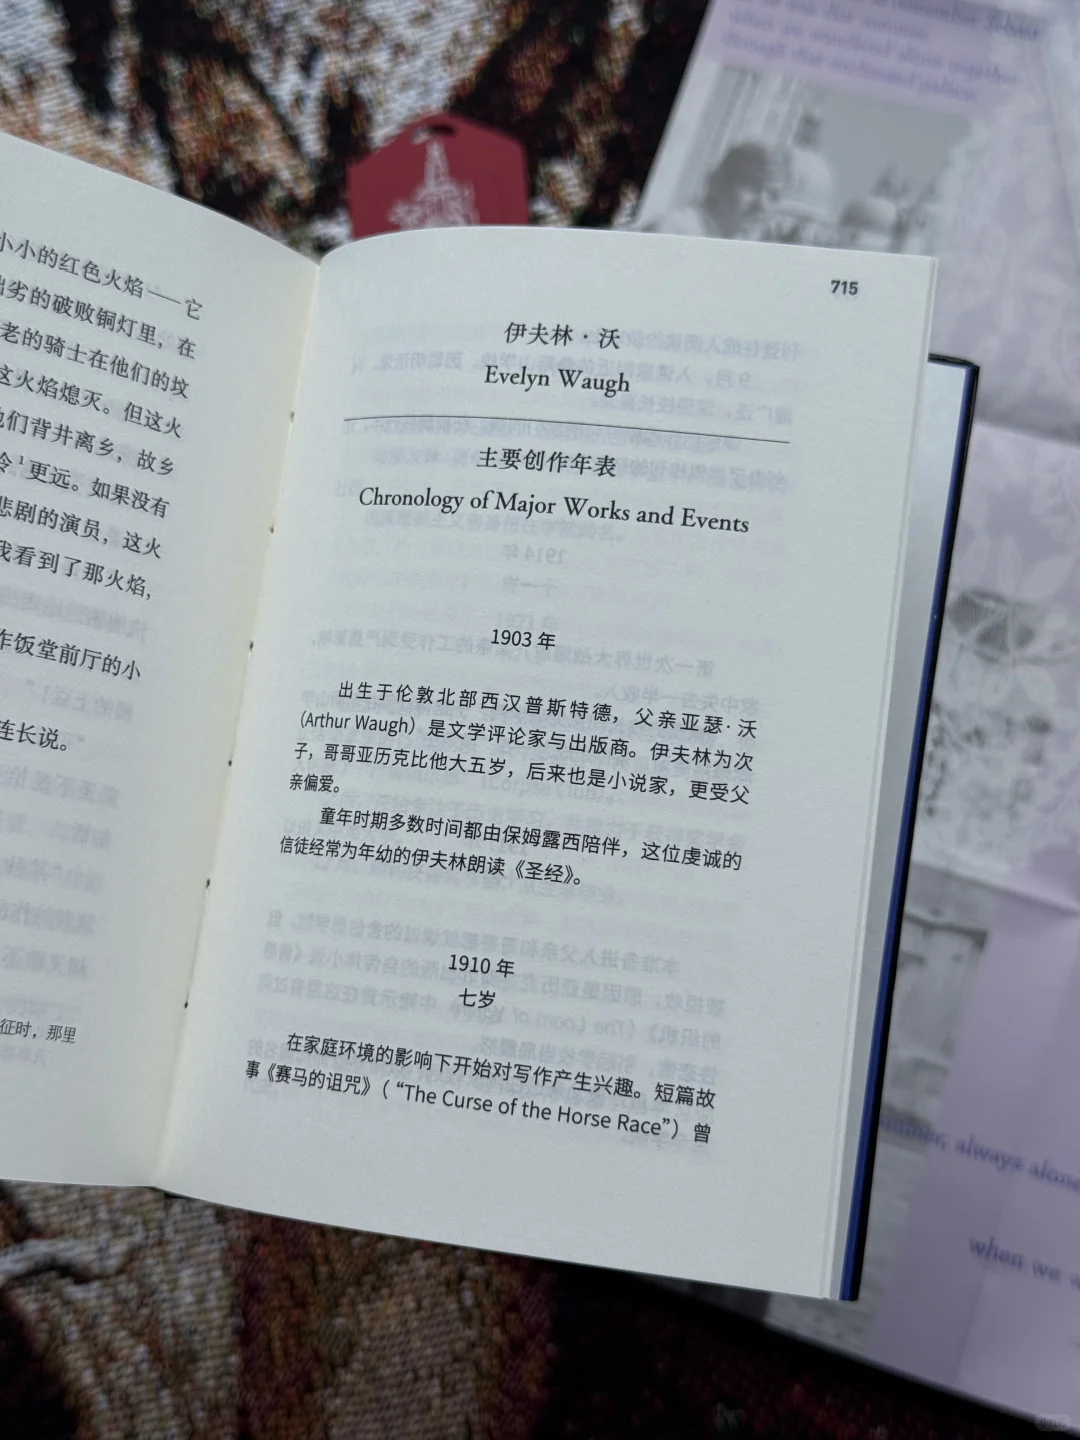 小小的红色火焰——它
劣的破败铜灯里，在
老的骑士在他们的坟
这火焰熄灭。但这火
他们背井离乡，故乡
冷¹更远。如果没有
悲剧的演员，这火
我看到了那火焰，
作饭堂前厅的小
连长说。
征时，那里
715
伊夫林·沃
Evelyn Waugh
主要创作年表
Chronology of Major Works and Events
1903 年
出生于伦敦北部西汉普斯特德，父亲亚瑟·沃
(Arthur Waugh）是文学评论家与出版商。伊夫林为次
子，哥哥亚历克比他大五岁，后来也是小说家，更受父
亲偏爱。
童年时期多数时间都由保姆露西陪伴，这位虔诚的
信徒经常为年幼的伊夫林朗读《圣经》。
1910 年
七岁
在家庭环境的影响下开始对写作产生兴趣。短篇故
事《赛马的诅咒》（ “The Curse of the Horse Race”）曾
remember
when we wandered alone together
through that enchanted palace
summer, always alone
when we w